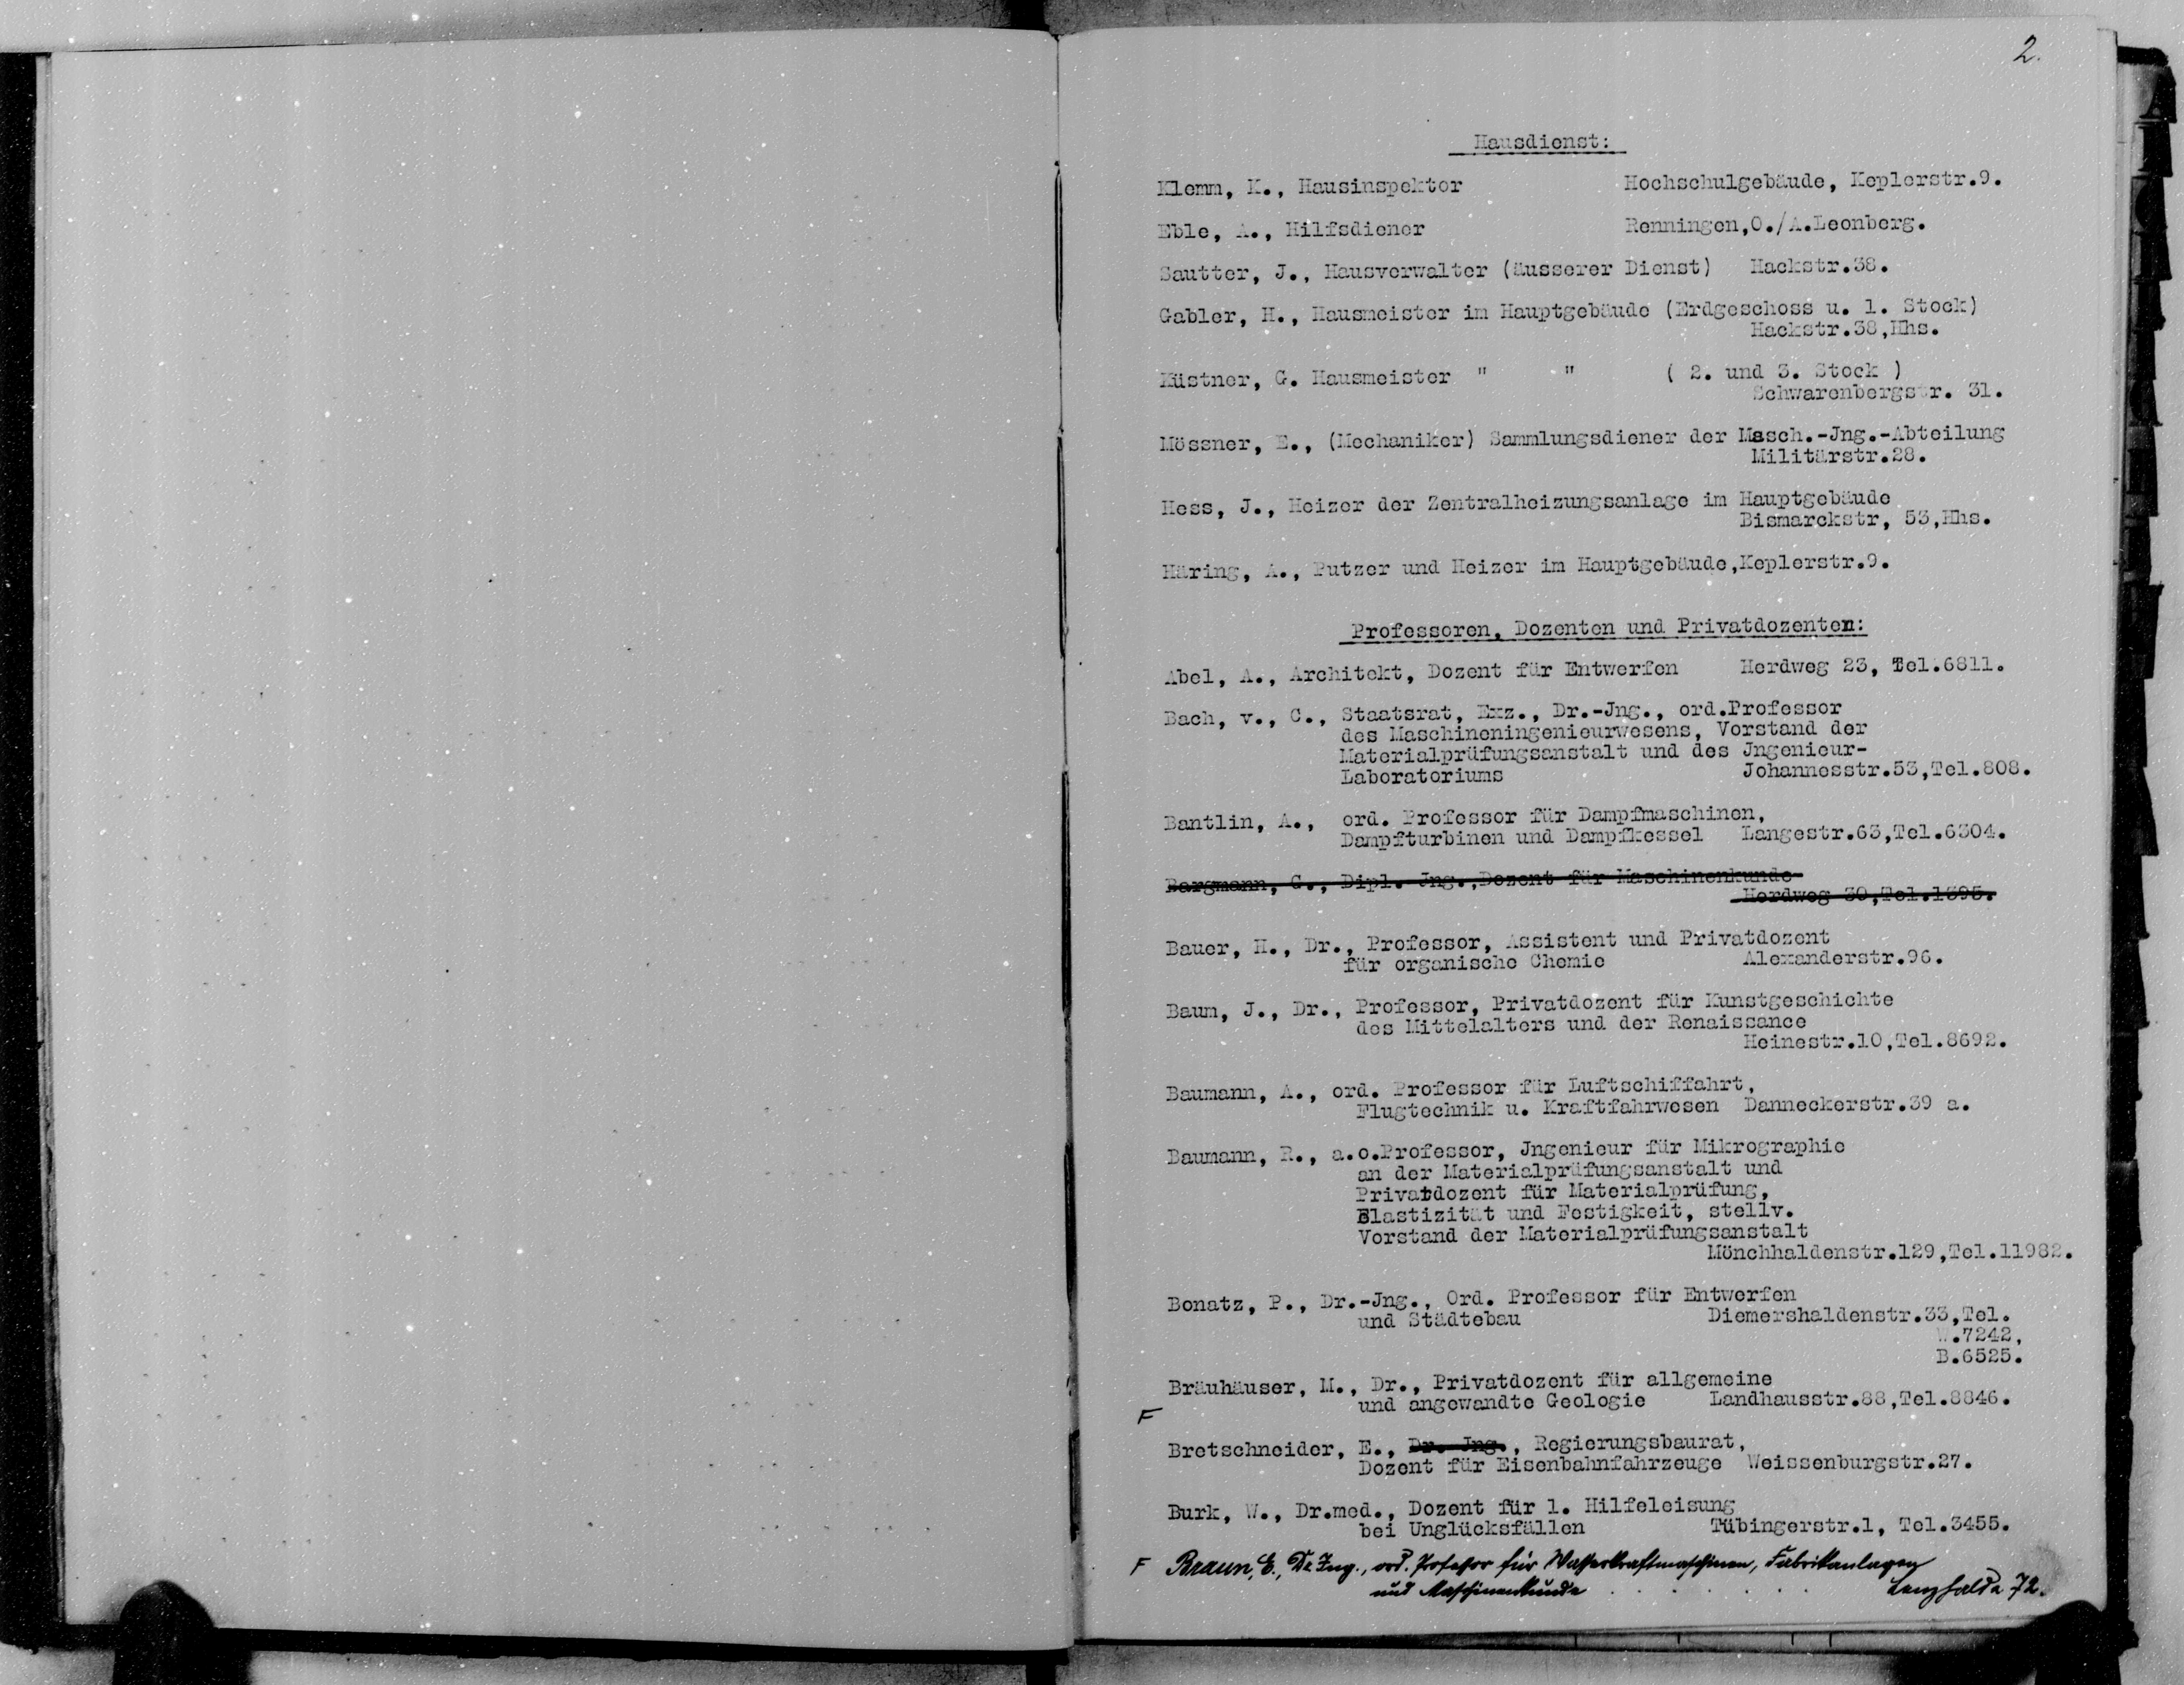 2.
Hausdienst:
Klemm, K., Hausinspektor Hochschulgebäude, Keplerstr.9.
Eble, A., Hilfsdiener Renningen,O./A.Leonberg.
Sautter, J., Hausverwalter (äusserer Dienst) Hackstr.38.
Gabler, H., Hausmeister im Hauptgebäude (Erdgeschoss u. 1. Stock)
Hackstr.38,Hhs.
Küstner, G. Hausmeister " " ( 2. und 3. Stock )
Schwarenbergstr. 31.
Mössner, E., (Mechaniker) Sammlungsdiener der Masch.-Jng.-Abteilung
Militärstr.28.
Hess, J., Heizer der Zentralheizungsanlage im Hauptgebäude
Bismarckstr, 53,Hhs.
Häring, A., Putzer und Heizer im Hauptgebäude,Keplerstr.9.
Professoren, Dozenten und Privatdozenten:
Abel, A., Architekt, Dozent für Entwerfen Herdweg 23, Tel.6811.
Bach, v., C., Staatsrat, Exz., Dr.-Jng., ord.Professor
des Maschineningenieurwesens, Vorstand der
Materialprüfungsanstalt und des Jngenieur-
Laboratoriums Johannesstr.53,Tel.808.
Bantlin, A., ord. Professor für Dampfmaschinen,
Dampfturbinen und Dampfkessel Langestr.63,Tel.6304.
Bergmann, G., Dipl. Jng.,Dozent für Maschinenkunde
Herdweg 30,Tel.1395.
Bauer, H., Dr., Professor, Assistent und Privatdozent
für organische Chemie Alexanderstr.96.
Baum, J., Dr., Professor, Privatdozent für Kunstgeschichte
des Mittelalters und der Renaissance
Heinestr.10,Tel.8692.
Baumann, A., ord. Professor für Luftschiffahrt,
Flugtechnik u. Kraftfahrwesen Danneckerstr.39 a.
Baumann, R., a.o.Professor, Jngenieur für Mikrographie
an der Materialprüfungsanstalt und
Privatdozent für Materialprüfung,
Elastizität und Festigkeit, stellv.
Vorstand der Materialprüfungsanstalt
Mönchhaldenstr.129,Tel.11982.
Bonatz, P., Dr.-Jng., Ord. Professor für Entwerfen
und Städtebau Diemershaldenstr.33,Tel.
W.7242,
B.6525.
Bräuhäuser, M., Dr., Privatdozent für allgemeine
und angewandte Geologie Landhausstr.88,Tel.8846.
F
Bretschneider, E., Dr. Jng., Regierungsbaurat,
Dozent für Eisenbahnfahrzeuge Weissenburgstr.27.
Burk, W., Dr.med., Dozent für 1. Hilfeleisung
bei Unglücksfällen Tübingerstr.1, Tel.3455.
F Braun, E., Dr. Ing., ord. Professor für Wasserkraftmaschinen, Fabrikanlagen
und Maschinenkunde . . . . . . . Lenzhalde 72.